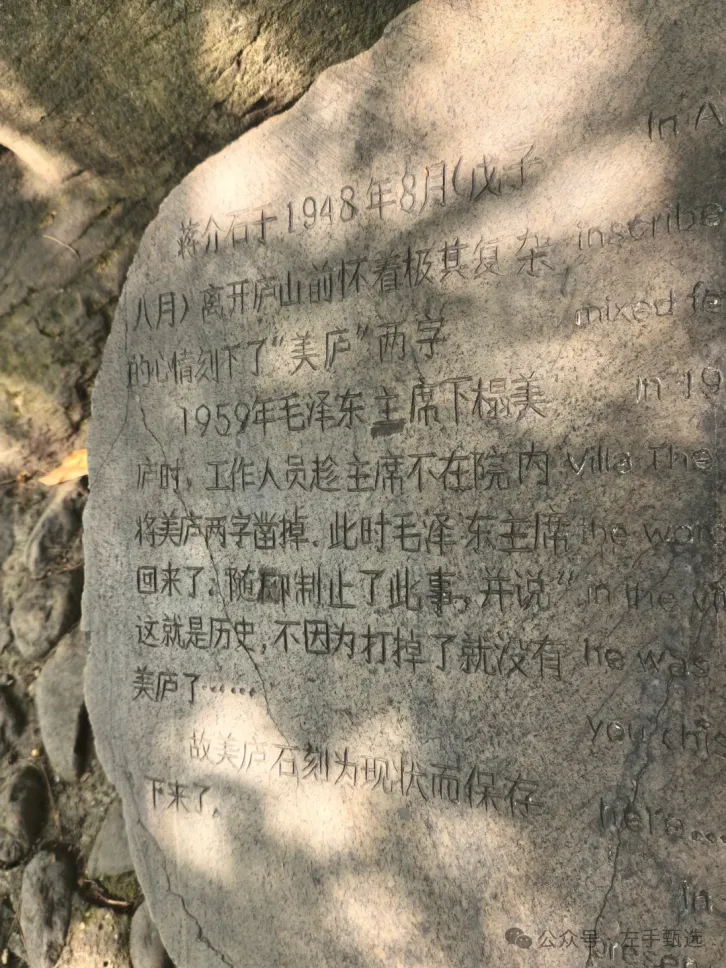 蒋介石于1948年8月(戊子
八月)离开庐山前怀着极其复杂
的心情刻下了“美庐”两字
1959年毛泽东主席下榻美
庐时，工作人员趁主席不在院内
将美庐两字凿掉.此时毛泽东主席
回来了.随即制止了此事。并说“
这就是历史,不因为打掉了就没有
美庐了……
故美庐石刻为现状而保存
下来了.
In A
inscribe
mixed fe
in 19
villa The
the word
in the vi
he was
you chi
here...
In
presen
公众号·左手甄选